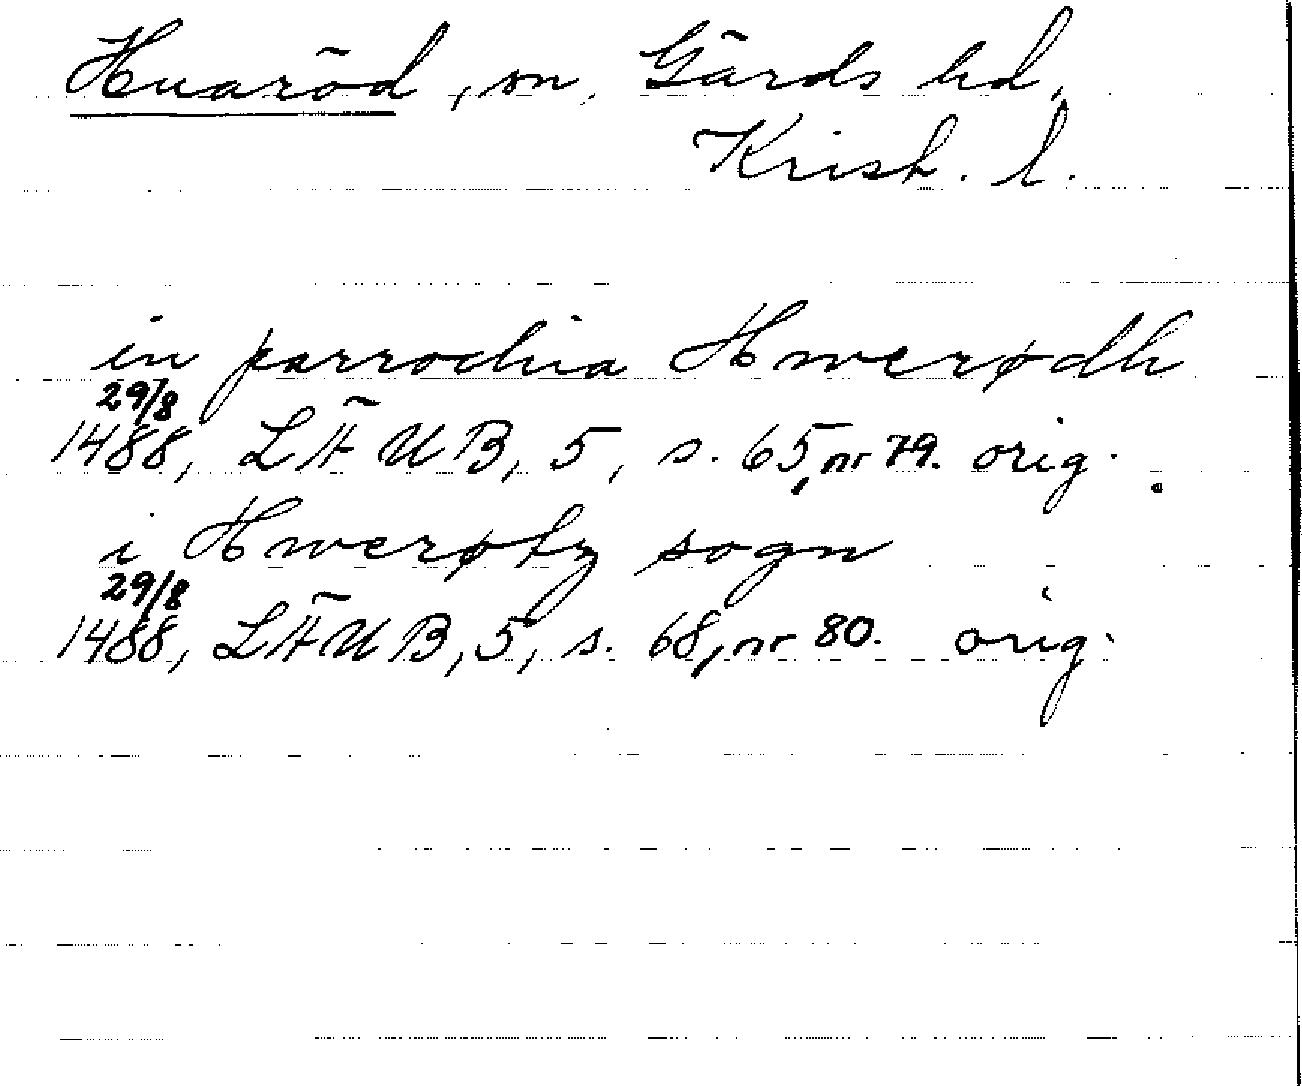 Huaröd, sn. Gärds hd.
Krist. l.
in parrochia Hwerødh
29/8
1488, LÄUB, 5, s. 65, nr 79. orig.
i Hwerøtz sogn
29/8
1488, LÄUB, 5, s. 68, nr 80. orig.